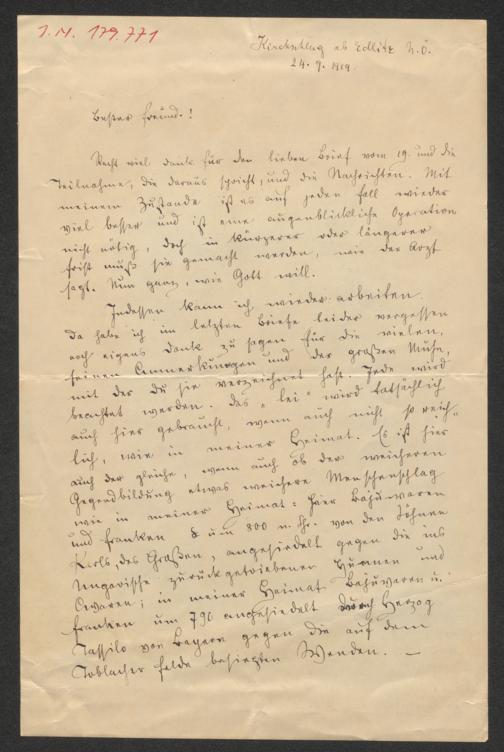 I.N. 179.771
Kirchschlag ob Edlitz N.Ö.
24. 9. 1919.
Bester Freund.!
Recht viel Dank für den lieben Brief vom 19. und die
Teilnahme, die daraus spricht, und die Nachrichten. Mit
meinem Zustande ist es auf jeden Fall wieder
viel besser und ist eine augenblickliche Operation
nicht nötig, doch in kürzerer oder längerer
Frist muß sie gemacht werden, wie der Arzt
sagt. Nun ganz, wie Gott will.
Indessen kann ich wieder arbeiten.
Da habe ich im letzten Briefe leider vergessen
noch eigens Dank zu sagen für die vielen,
feinen Anmerkungen und der großen Mühe,
mit der Du sie verzeichnet hast. Jede wird
beachtet werden. Das "lei" wird tatsächlich
auch hier gebraucht, wenn auch nicht so reich-
lich, wie in meiner Heimat. Es ist hier
auch der gleiche, wenn auch ob der weicheren
Gegendbildung etwas weichere Menschenschlag
wie in meiner Heimat: hier Bajuwaren
und Franken um 800 n. Chr. von den Söhnen
Karls, des Großen, angesiedelt gegen die ins
Ungarische zurückgetriebenen Hunnen und
Awaren; in meiner Heimat Bajuwaren u.
Franken um 790 angesiedelt durch Herzog
Tassilo von Bayern gegen die auf dem
Toblacher Felde besiegten Wenden. —